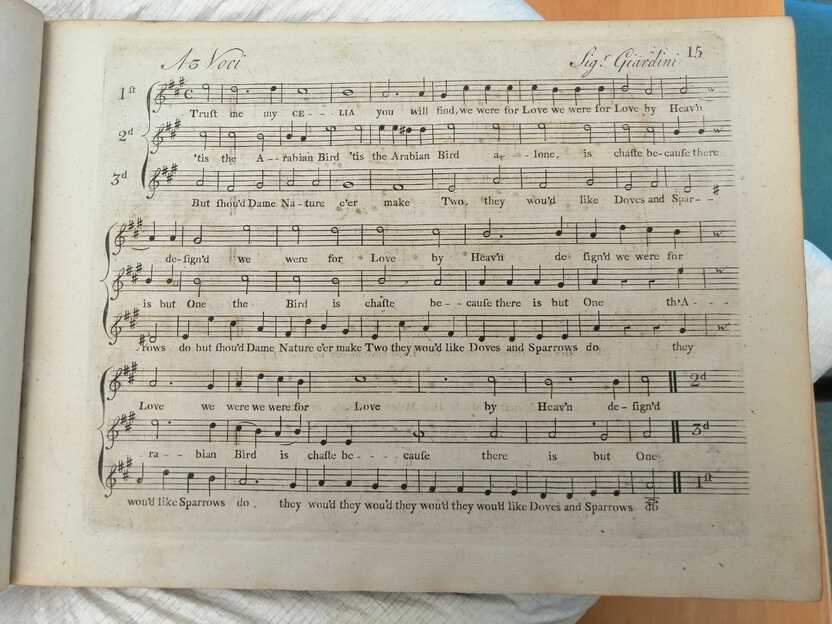 A 3 Voci Sigr. Giardini 15
1st
Truſt me my CE - - LIA you will find, we were for Love we were for Love by Heav'n
2d
'tis the A - - rabian Bird 'tis the Arabian Bird a - - lone, is chaſte be-cauſe there
3d
But ſhou'd Dame Na - ture e'er make Two, they wou'd like Doves and Spar - -
de-ſign'd we were for Love by Heav'n de ſign'd we were for
is but One the Bird is chaſte be - - cauſe there is but One th'A - -
rows do but ſhou'd Dame Nature e'er make Two they wou'd like Doves and Sparrows do they
2d
Love we were we were for Love by Heav'n de - ſign'd
3d
ra - - bian Bird is chaſte be - - - cauſe there is but One
1st
wou'd like Sparrows do . they wou'd they wou'd they wou'd they wou'd like Doves and Sparrows do